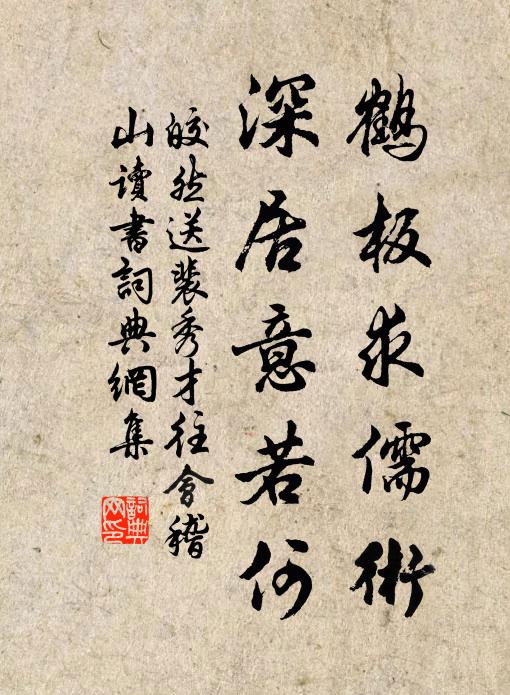 鶴板求儒術
深居意若何
皎然送裴秀才往會稽
山讀書詞典網集
詞典
网印